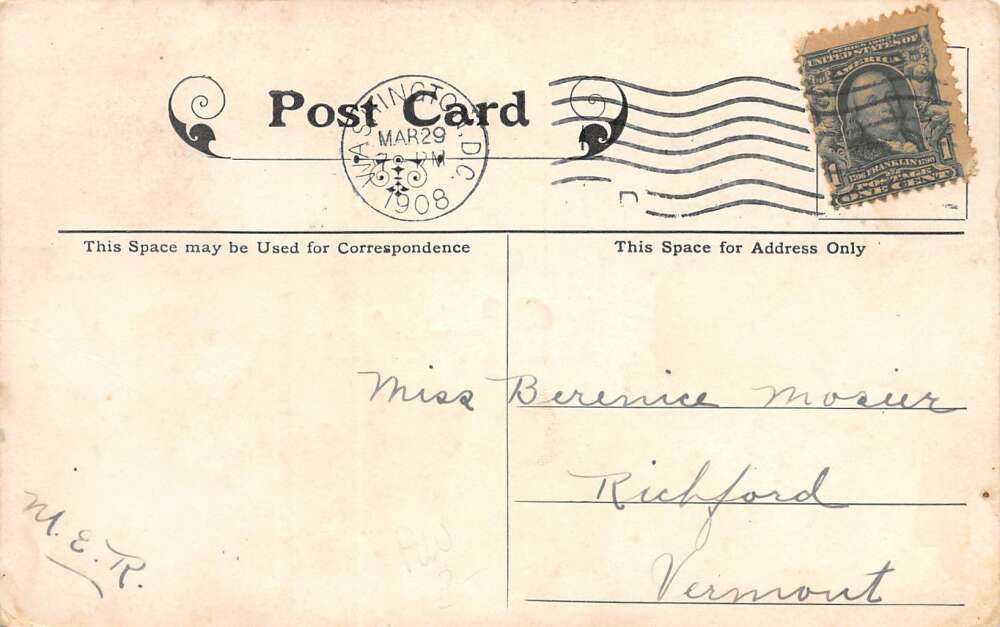 Post Card
WASHINGTON, D.C.
MAR 29
PM
1908
SERIES 1902
UNITED STATES OF
AMERICA
1706 FRANKLIN 1790
POSTAGE
1 ONE CENT 1
This Space may be Used for Correspondence
This Space for Address Only
Miss Berenice Mosier
Richford
Vermont
M. E. R.